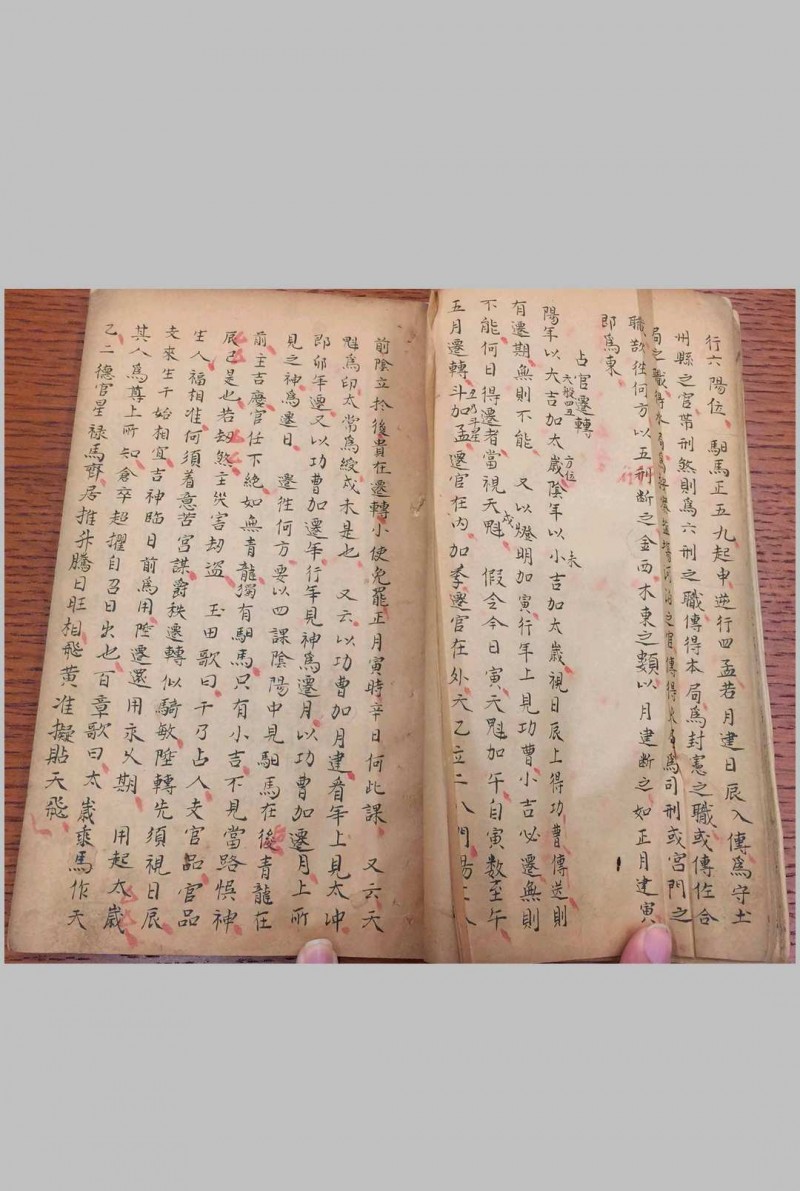 行六陽位、馹馬正五九起申逆行四孟若月建日辰入傳爲守土
州縣之官帶刑煞則爲六刑之職傳得本局爲封憲之職或傳佐合
局之職傳得爲司刑或宮門之
職欲徃何方以五刑斷之金西木東之類以月建斷之如正月建寅
即爲東
占官遷轉
方位
陽年以大吉加太歲陰年以小吉加太歲視日辰上得功曹傳送則
未
有遷期無則不能 又以燈明加寅行年上見功曹小吉必遷無則
不能何日得遷者當視天魁 假令今日寅天魁加午自寅數至午
戌
五月遷轉 斗加孟遷官在内加季遷官在外天乙立二八門
前陰立於後貴在遷轉小使免罷正月寅時辛日何此課 又云天
魁爲印太常爲綬戌未是也 又云以功曹加月建看年上見太冲
即卯年遷又以功曹加遷年行年見神爲遷月以功曹加遷月上所
見之神爲遷日 遷徃何方要以四課陰陽中見馹馬在後青龍在
前主吉慶官任下絶如無青龍獨有馹馬只有小吉不見當路悞神
辰巳是也若劫煞主災害劫盜 玉田歌曰干乃占人支官品官品
生人福相准何須着意苦宮謀爵秩遷轉似騎敏陞轉先須視日辰
支來生干始相宜吉神臨日前爲用陞遷還用永久期 用起太歲
其人爲尊上所知倉卒超擢自召日出也百章歌曰太歲乘馬作天
乙二德官星禄馬齊居推升騰日旺相飛黃准擬貼天飛